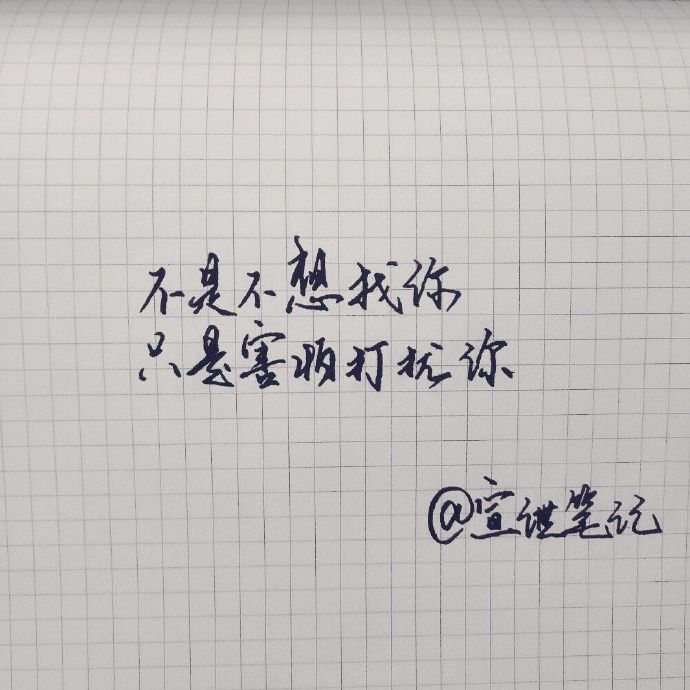 不是不想找你
只是害怕打扰你
@宣谌笔记